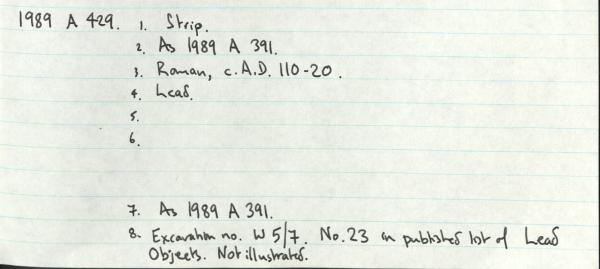 1989 A 429. 1. Strip.
2. As 1989 A 391.
3. Roman, c. A.D. 110-20.
4. Lead.
5.
6.
7. As 1989 A 391.
8. Excavation no. W 5/7. No. 23 in published list of Lead
Objects. Not illustrated.